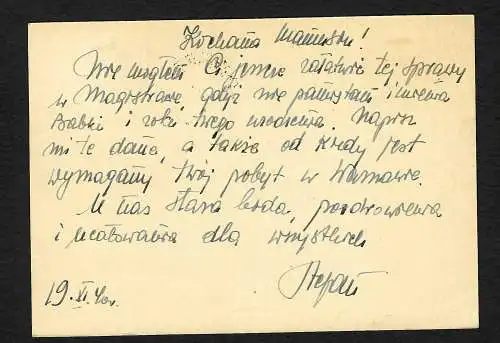 Kochana Mamusiu!
Nie mogłem Ci jeszcze załatwić tej sprawy
w Magistracie, gdyż nie pamiętam imienia
Babki i roku Twego urodzenia. Napisz
mi te dane, a także od kiedy jest
wymagany Twój pobyt w Warszawie.
U nas stara bieda, pozdrowienia
i ucałowania dla wszystkich
Stefan
19. XI. 40r.